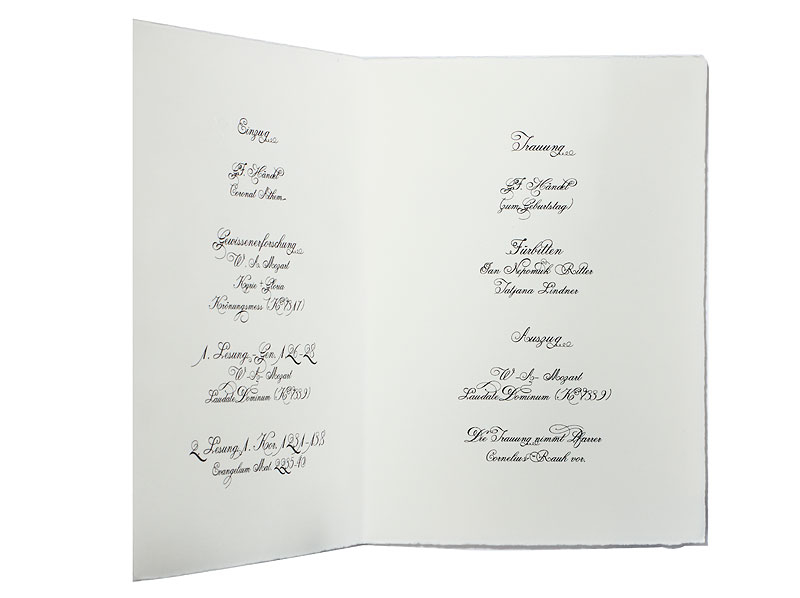 Einzug
G.F. Händel
Coronat Athem
Gewissenerforschung
W. A. Mozart
Kyrie + Gloria
Krönungsmess (KV317)
1. Lesung - Gen. 1 26-28
W-A- Mozart
Laudate Dominum (KV339)
2. Lesung 1. Kor. 1231-138
Evangelium Mat. 2235-40
Trauung
G.F. Händel
(zum Geburtstag)
Fürbitten
Jan Nepomuk Ritter
Tatjana Lindner
Auszug
W-A- Mozart
Laudate Dominum (KV339)
Die Trauung nimmt Pfarrer
Cornelius-Rauh vor.